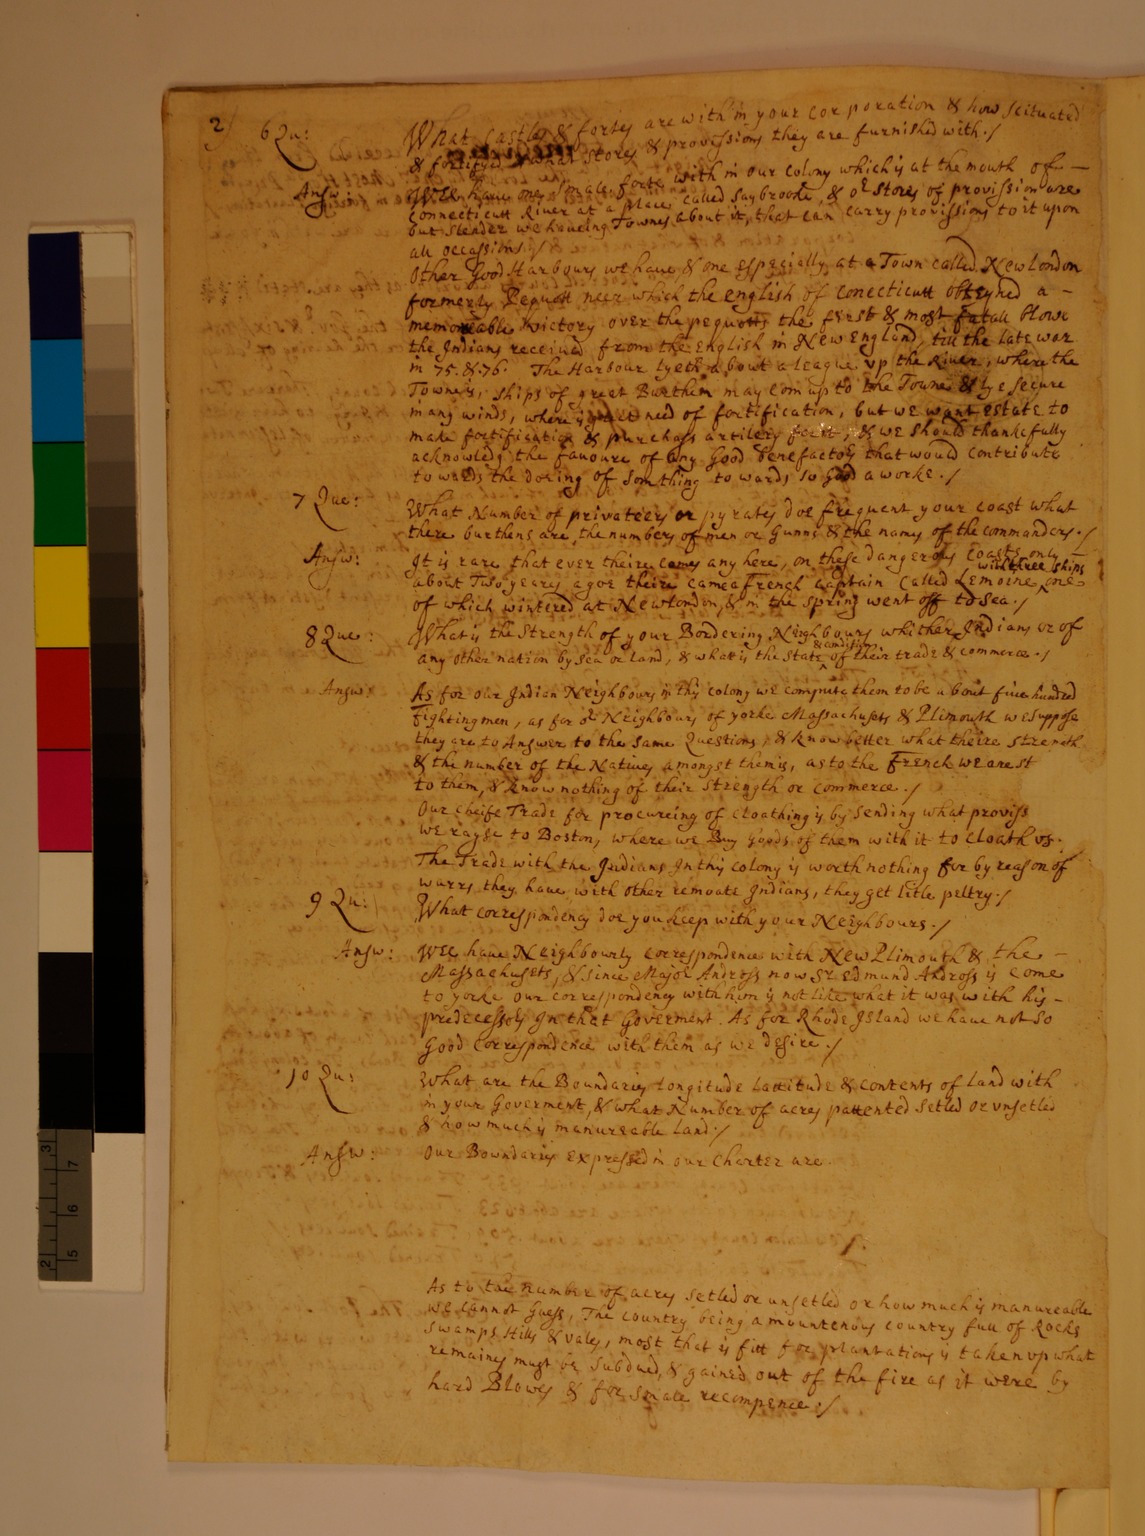 2/
6 Qu: What Castles & fortes are with in your corporation & how scituated
& fortifyed & what stores & provissions they are furnished with./
Answ: Wee have one smale forte with in our colony which is at the mouth of —
connecticutt River at a place called Saybrooke, & or stores of provission are
but slender we haveing Townes about it, that can carry provissions to it upon
all occassions./
Other Good Harbours we have & one especially at a Town called New london
formerly Pequott neer which the english of conecticutt obteyned a —
memoreable victory over the pequotts the first & most fatall blow
the Indians received from the English in New England, till the late war
in 75. & 76. The Harbour lyeth about a league up the River, where the
Towne is, ships of great Burthen may com up to the Towne & lye secure
in any winds, where is great need of fortification, but we want estate to
make fortification & purchass artilery for it, & we should thankefully
acknowledg the favoure of any Good benefactors that would contribute
to wards the doeing of somthing to wards so good a worke./
7 Que: What Number of privateers or pyrates doe frequent your coast what
there burthens are, the numbers of men or Gunns & the names of the commanders./
Answ: It is rare that ever theire comes any here, on these dangerous coasts, only —
about Two yeares agoe theire came a French captain called Lemoine, with three ships one
of which wintered at New london, & in the spring went off to sea./
8 Que: What is the Strength of your Bordering Neighbours whither Indians or of
any other nation by sea or land, & what is the state & condition of their trade & commerce./
Answ: As for our Indian Neighbours in this colony we compute them to be about five hundred
fighting men, as for or Neighbours of yorke Massachusets & Plimouth we suppose
they are to Answer to the same Questions, & know better what theire strength
& the number of the Natives amongst them is, as to the French we are st
to them, & know nothing of their strength or commerce./
Our cheife Trade for procureing of cloathing is by sending what proviss
we rayse to Boston, where we Buy goods of them with it to cloath us.
The Trade with the Indians In this colony is worth nothing for by reason of
warrs they have with other remoate Indians, they get litle peltry./
9 Qu: What correspondency doe you keep with your Neighbours./
Answ: Wee have Neighbourly correspondence with New Plimouth & the —
Massachusets, & since Major Andross now Sr Edmund Andross is come
to yorke our correspondency with him is not like what it was with his —
predecessors In that Goverment. As for Rhode Island we have not so
Good correspondence with them as we desire./
10 Qu: What are the Boundaries Longitude Lattitude & contents of Land with
in your Goverment, & what Number of acres pattented setled or unsetled
& how much is manureable land./
Answ: Our Boundaries expressed in our Charter are
/.
As to the number of acres setled or unsetled or how much is manureable
we cannot Guess, The country being a mountenous country full of Rocks
swamps Hills & vales, most that is fitt for plantations is taken up what
remaines must be subdued, & gained out of the fire as it were by
hard Blowes & for smale recompence./